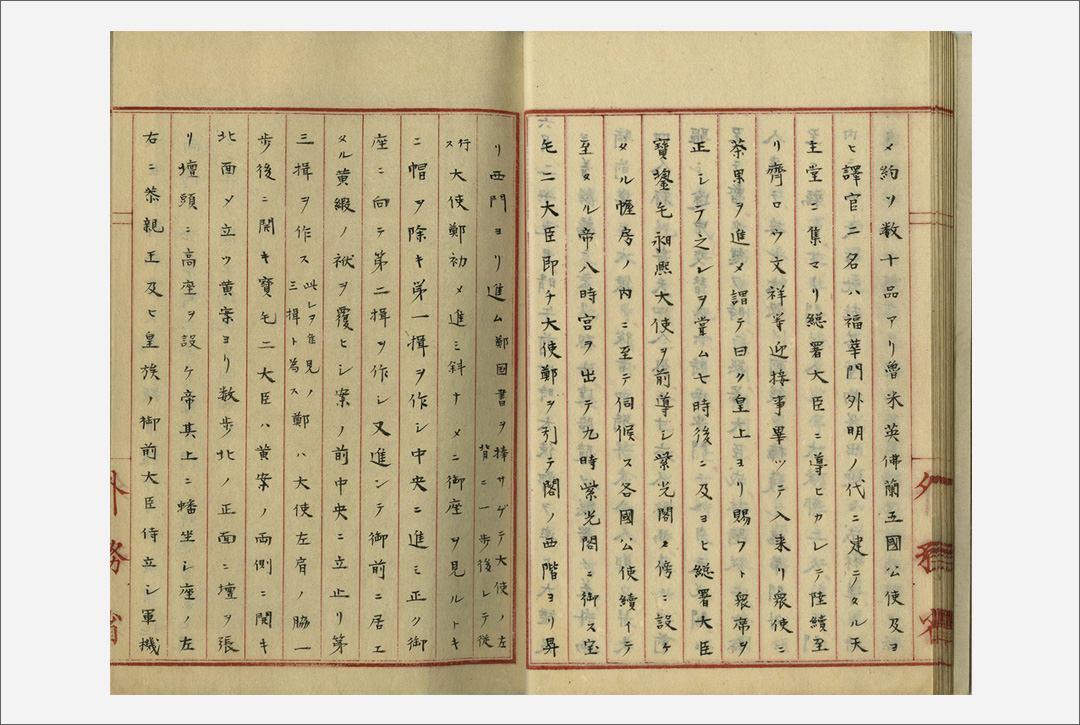 メ約ソ数十品アリ魯米英佛蘭五國公使及ヨ
ヒ譯官二名ハ福華門外明出ノ代ニ建テタル天
主堂ニ集マリ総署大臣ニ導ヒカレテ陸續至
リ齊ロウ文祥等迎接事畢ツテ入来リ衆使ニ
茶果ヲ進メ謂テ曰ク皇上ヨリ賜フト衆席ヲ
正シテ之レヲ掌ム七時後ニ及ヨヒ総署大臣
寶鋆毛昶熙大使ヲ前導シ紫光閣ノ傍ニ設ケ
タル幄房ノ内ニ至テ伺候ス各國公使續イテ
至タル帝八時宮ヲ出テ九時紫光閣ニ御ス宝
毛二大臣即チ大使鄭ヲ引テ閣ノ西階ヨリ昇
リ西門ヨリ進ム鄭国書ヲ捧サゲテ大使ノ左
背ニ一歩後レテ従
行ス大使鄭初メ進ミ斜ナメニ御座ヲ見ルトキ
ニ帽ヲ除キ第一揖ヲ作シ中央ニ進ミ正ク御
座ニ向テ第二揖ヲ作シ又進ンテ御前ニ居エ
タル黄緞ノ袱ヲ覆ヒシ案ノ前中央ニ立止リ第
三揖ヲ作ス此レヲ隹見ノ
三揖ト為ス鄭ハ大使左肩ノ脇一
歩後ニ開キ寶毛二大臣ハ黄案ノ両側ニ開キ
北面メ立ツ黄案ヨリ数歩北ノ正面ニ壇ヲ張
リ壇頭ニ高座ヲ設ケ帝其上ニ蟠坐シ座ノ左
右ニ恭親王及ヒ皇族ノ御前大臣侍立シ軍機
外務省
外務省